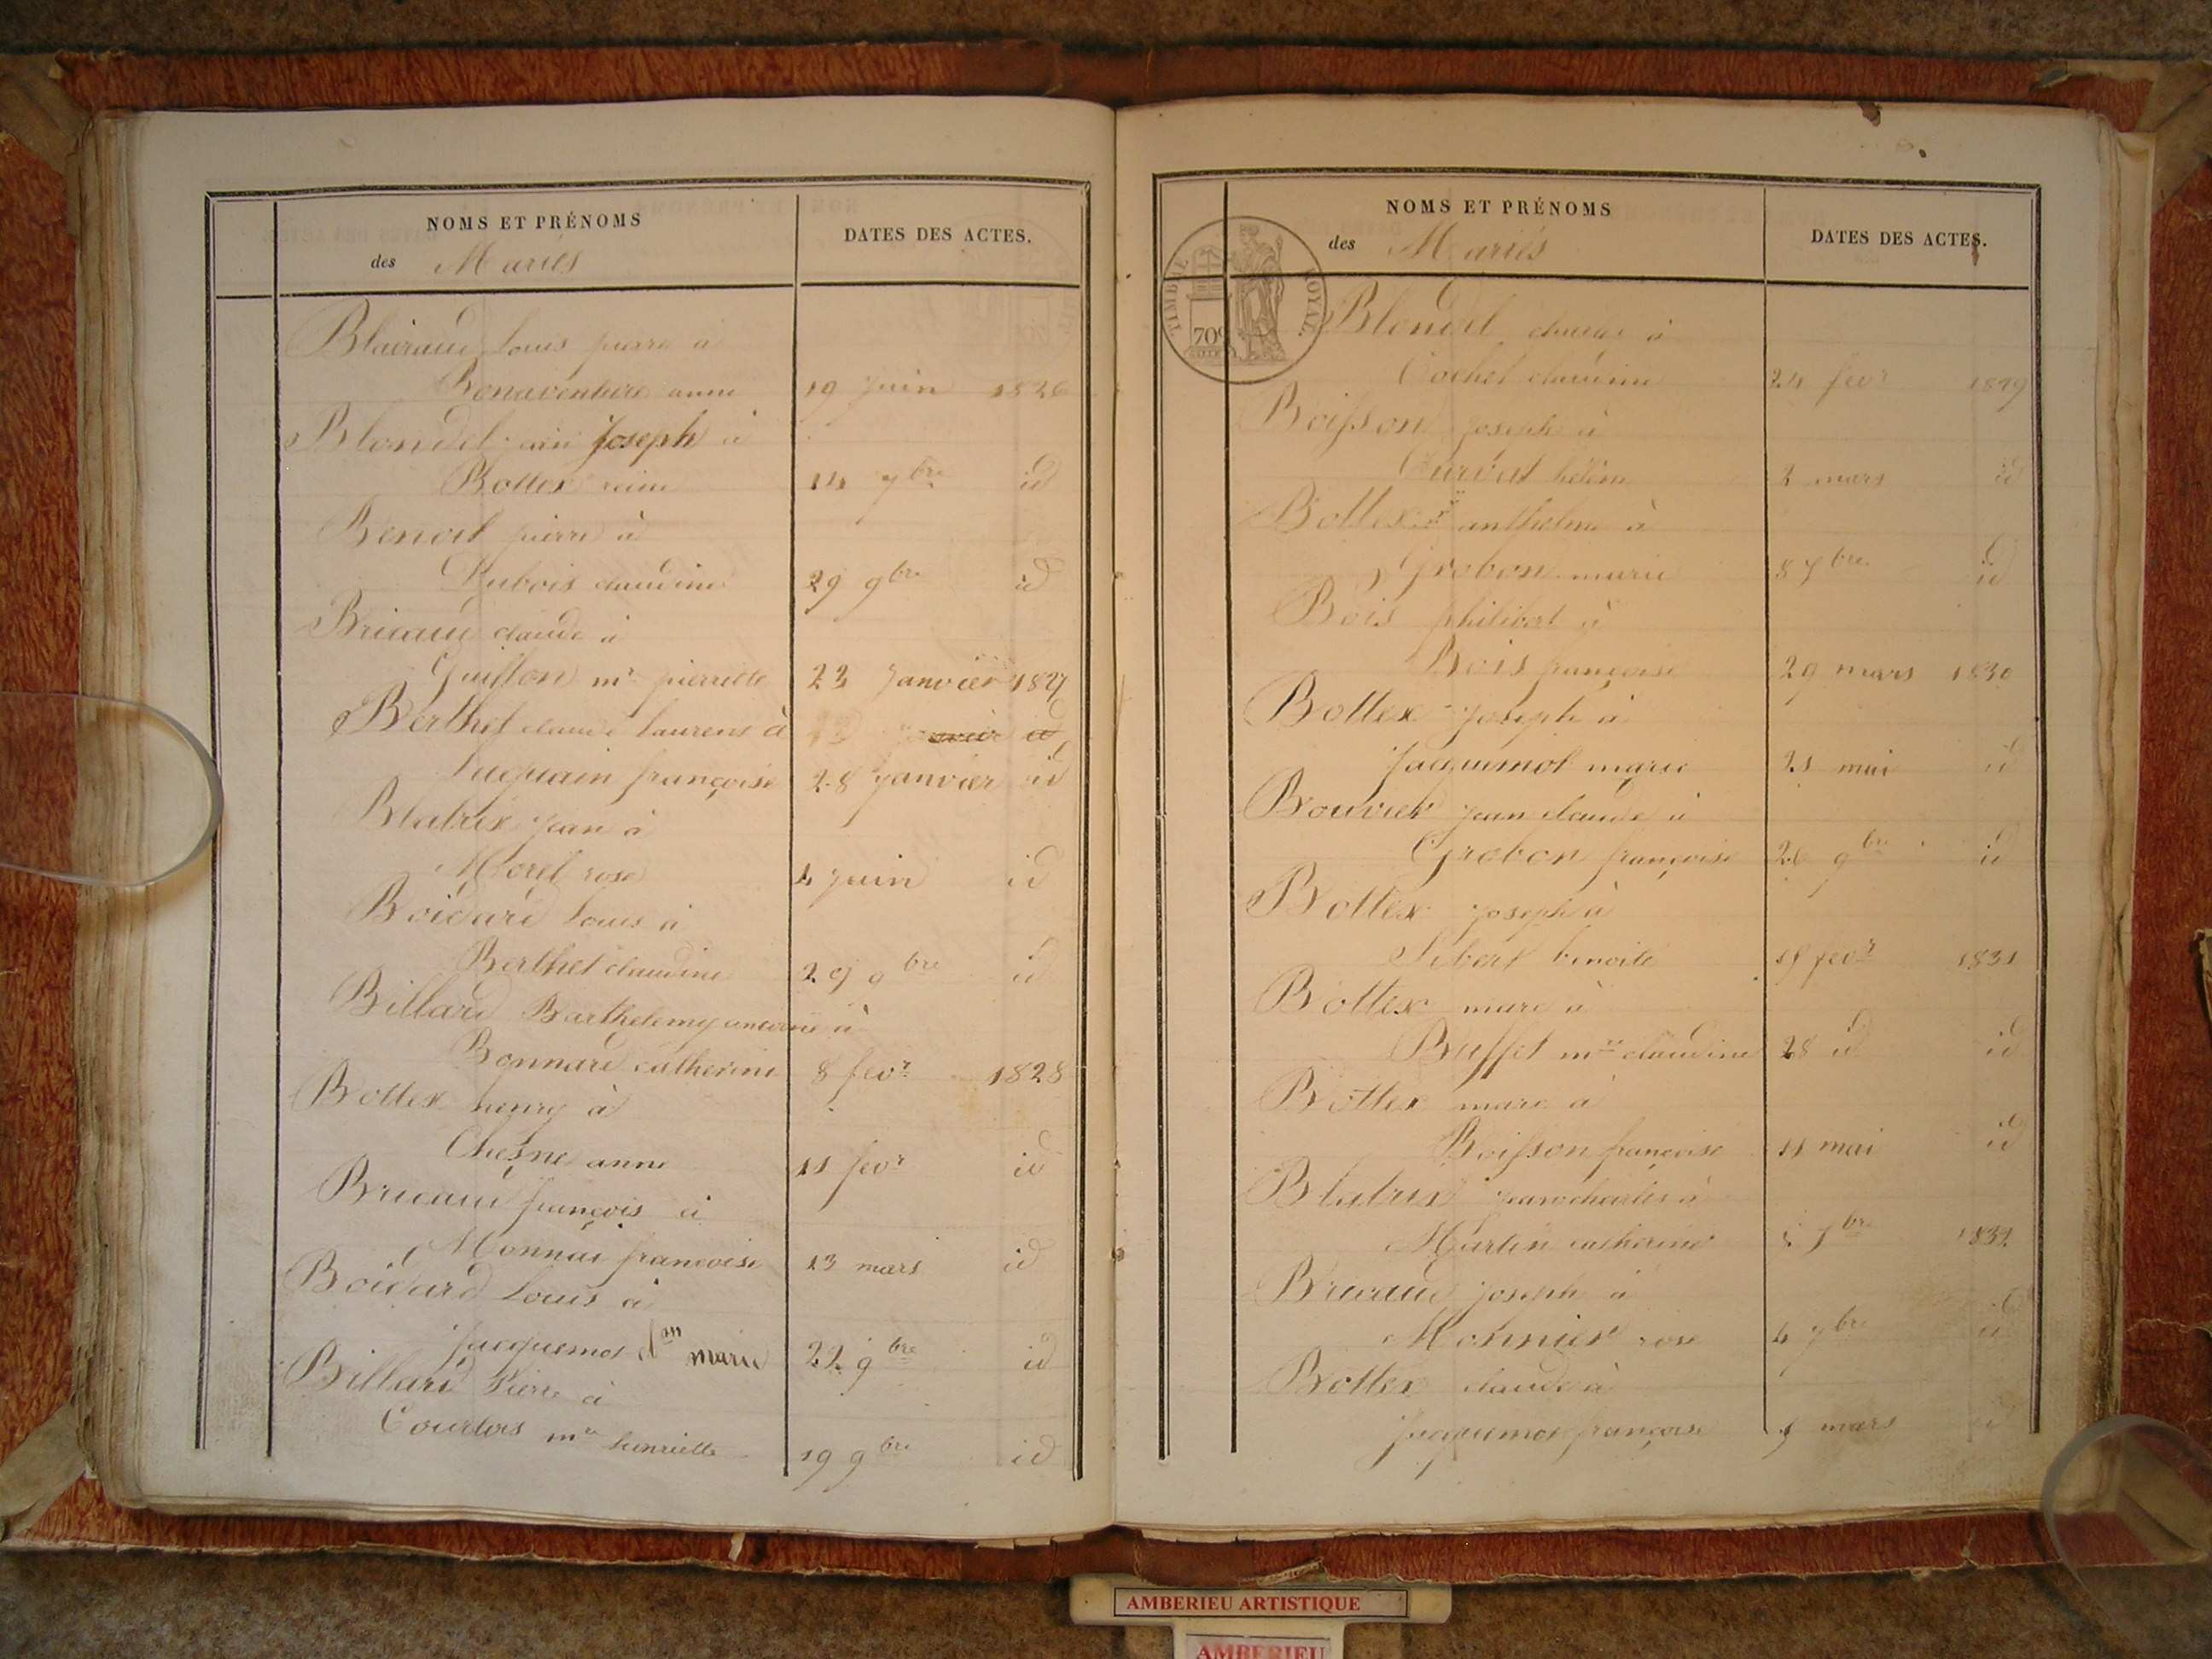 NOMS ET PRÉNOMS
des Mariés
DATES DES ACTES.
Blairaud louis pierre à
Bonaventure anne 19 juin 1826
Blondel Joseph à
Bottex reine 14 7bre id
Benoit pierre à
Dubois claudine 29 9bre id
Bricaud claude à
Guillon mie pierrette 23 Janvier 1827
Berthet claude laurens à
françoise 28 janvier id
Blatrix jean à
Morel rose 4 juin id
Boidard louis à
Berthet claudine 29 9bre id
Billard Barthelemy antoine à
Bonnard catherine 8 fevr 1828
Bottex henry à
Chesne anne 11 fevr id
Bricaud françois à
Monnai françoise 13 mars id
Boidard louis à
Jacquemot marie 22 9bre id
Billard Pierre à
Courtois mie henriette 19 9bre id
NOMS ET PRÉNOMS
des Mariés
DATES DES ACTES.
TIMBRE ROYAL.
70c
Blondel à
Cochet claudine 24 fevr 1829
Boisson joseph à
Curvat hélène 2 mars id
Bottex anthelme à
Grobon marie 8 7bre id
Bois philibert à
Bois françoise 29 mars 1830
Bottex joseph à
Jacquemot marie 21 mai id
Bouvier jean claude à
Grobon françoise 26 9bre id
Bottex joseph à
Sibert benoite fevr 1831
Bottex marc à
Buffet mie claudine 28 id id
Bottex marc à
Boisson françoise 11 mai id
Blatrix jean charles à
Martin catherine 1832
Bricaud joseph à
Monnier rose 4 7bre id
Bottex claude à
Jacquemot françoise 9 mars id
AMBERIEU ARTISTIQUE
AMBERIEU